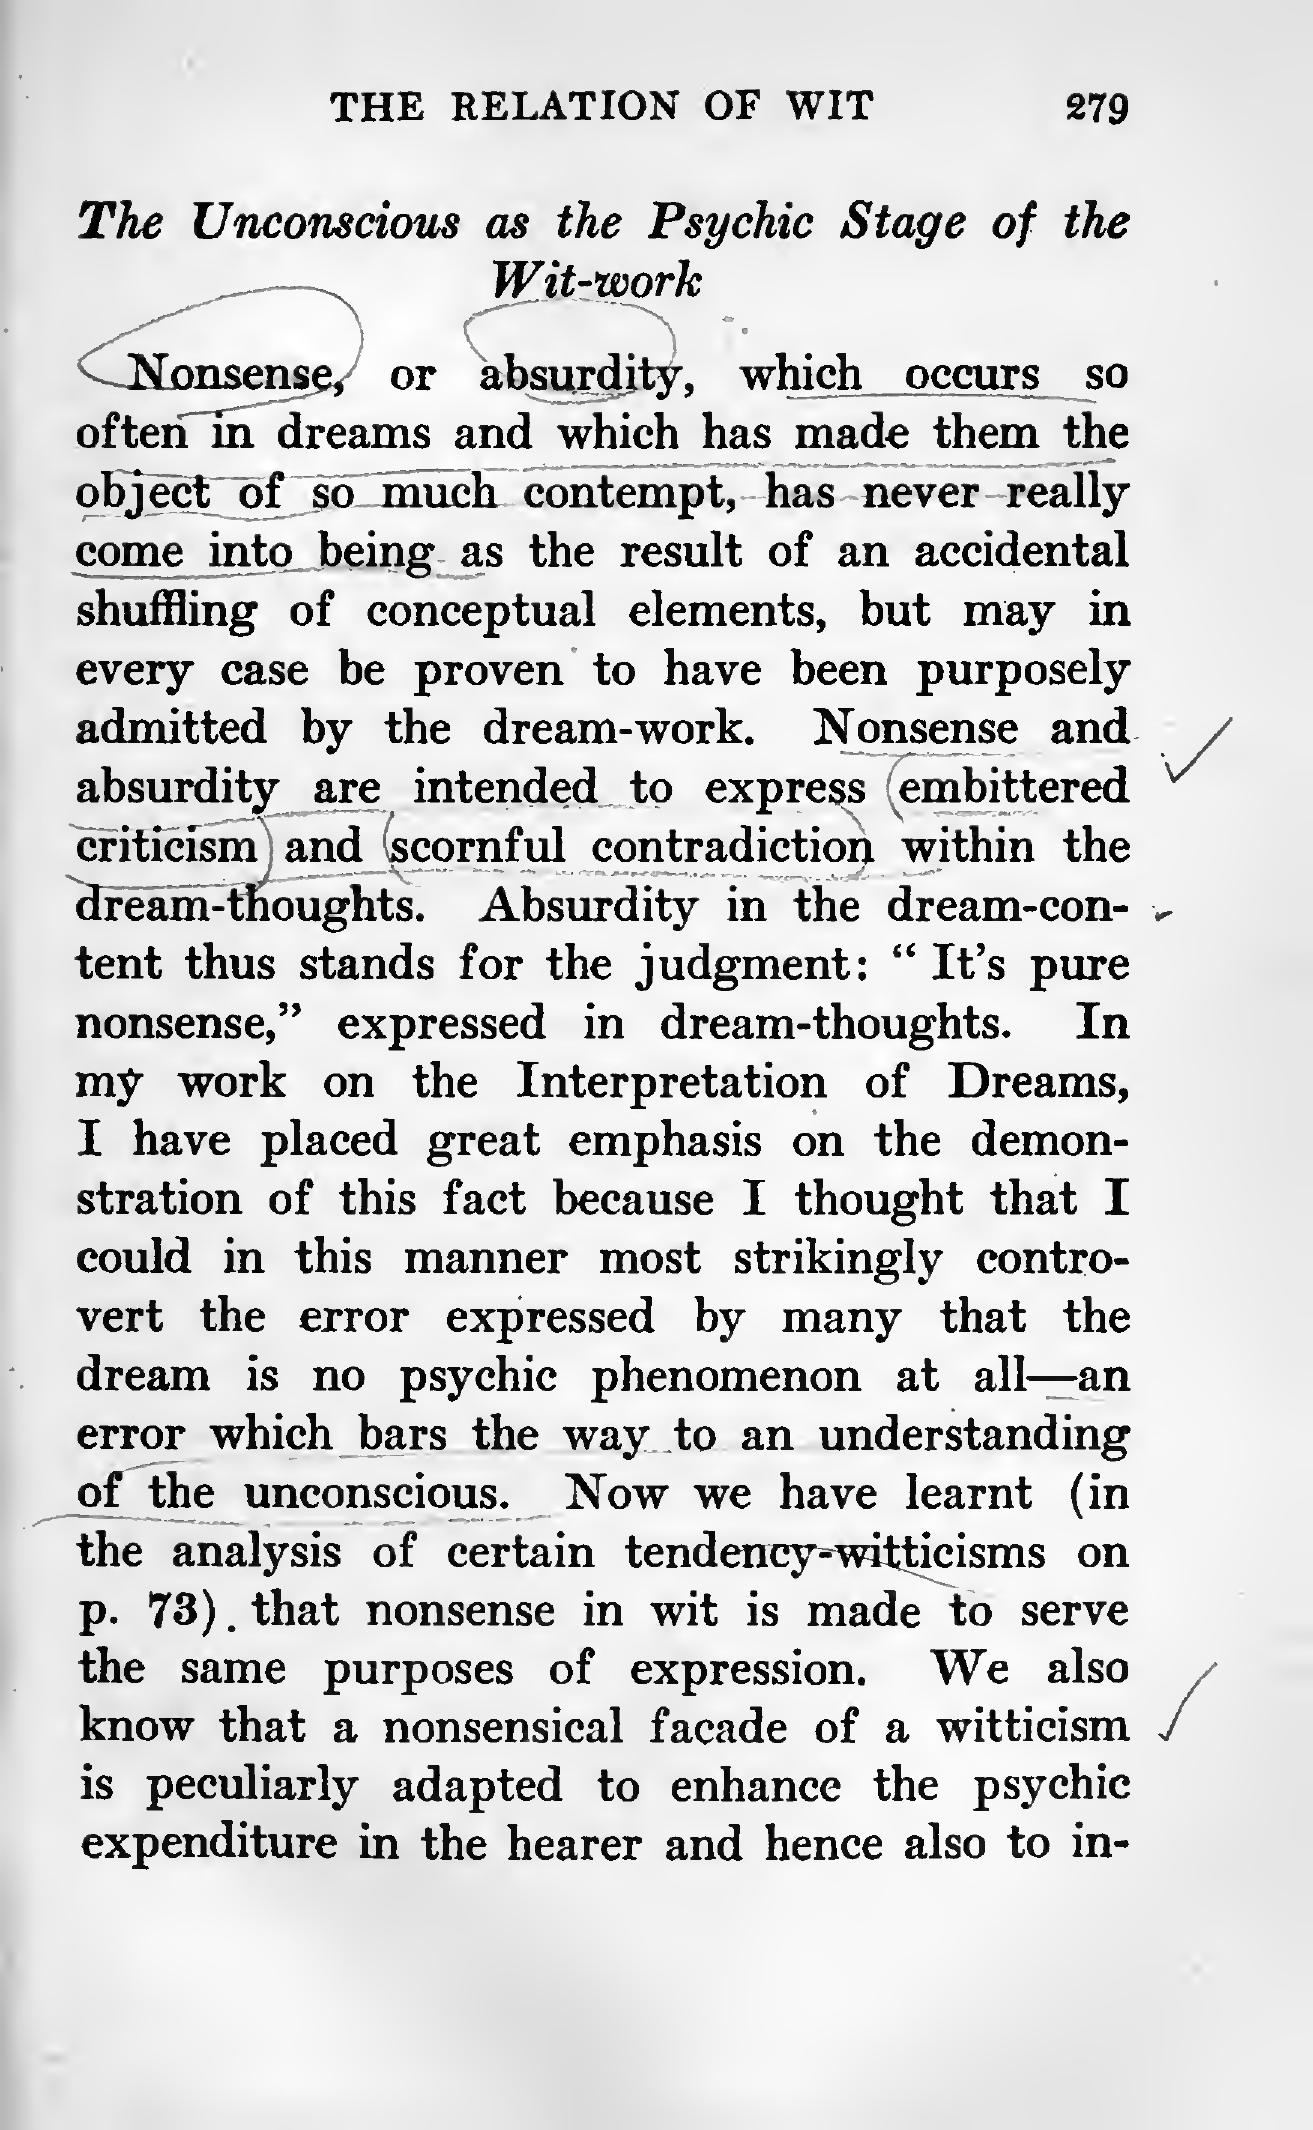 THE RELATION OF WIT 279
The Unconscious as the Psychic Stage of the
Wit-work
Nonsense, or absurdity, which occurs so
often in dreams and which has made them the
object of so much contempt, has never really
come into being as the result of an accidental
shuffling of conceptual elements, but may in
every case be proven to have been purposely
admitted by the dream-work. Nonsense and
absurdity are intended to express embittered
criticism and scornful contradiction within the
dream-thoughts. Absurdity in the dream-con-
tent thus stands for the judgment: “ It’s pure
nonsense,” expressed in dream-thoughts. In
my work on the Interpretation of Dreams,
I have placed great emphasis on the demon-
stration of this fact because I thought that I
could in this manner most strikingly contro-
vert the error expressed by many that the
dream is no psychic phenomenon at all—an
error which bars the way to an understanding
of the unconscious. Now we have learnt (in
the analysis of certain tendency-witticisms on
p. 73). that nonsense in wit is made to serve
the same purposes of expression. We also
know that a nonsensical façade of a witticism
is peculiarly adapted to enhance the psychic
expenditure in the hearer and hence also to in-